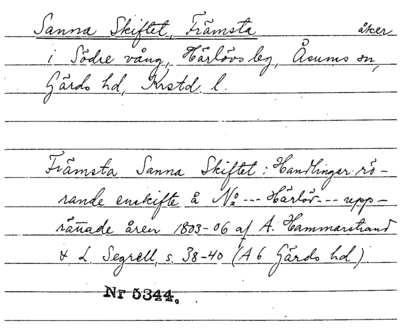 Sanna Skiftet, Främsta åker
i Södre vång, Härlövs by, Åsums sn,
Gärds hd, Krstd l.
Främsta Sanna Skiftet: Handlingar rö-
rande enskifte å No --- Härlöv --- upp-
rättade åren 1803-06 af A. Hammarstrand
& L Segrell, s. 38-40 (A 6 Gärds hd)
Nr 5344.